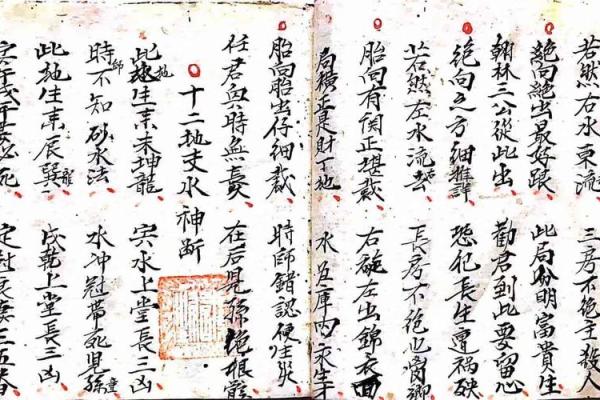 若然右水東流 三房不絕主殺人
絕向絕出最好跟 此局分明富貴生
翰林三公從此出 勸君到此要留心
絕向之方細推詳 恐犯長生遭禍殃
若然左水流去 長房不絕也
胎向有関正堪裁 右旋左出錦衣回
局積正是財丁地 水
胎向胎出仔細裁 時師錯認便生災
任君與時無憂 在后兒孫絕根骸
十二地支水神斷
此地生來未坤龍 宍水上堂長三凶
時師不知砂水法 水冲冠帶死兒童
此地生來辰巽龍 戌乾上堂長三凶
死 三五春